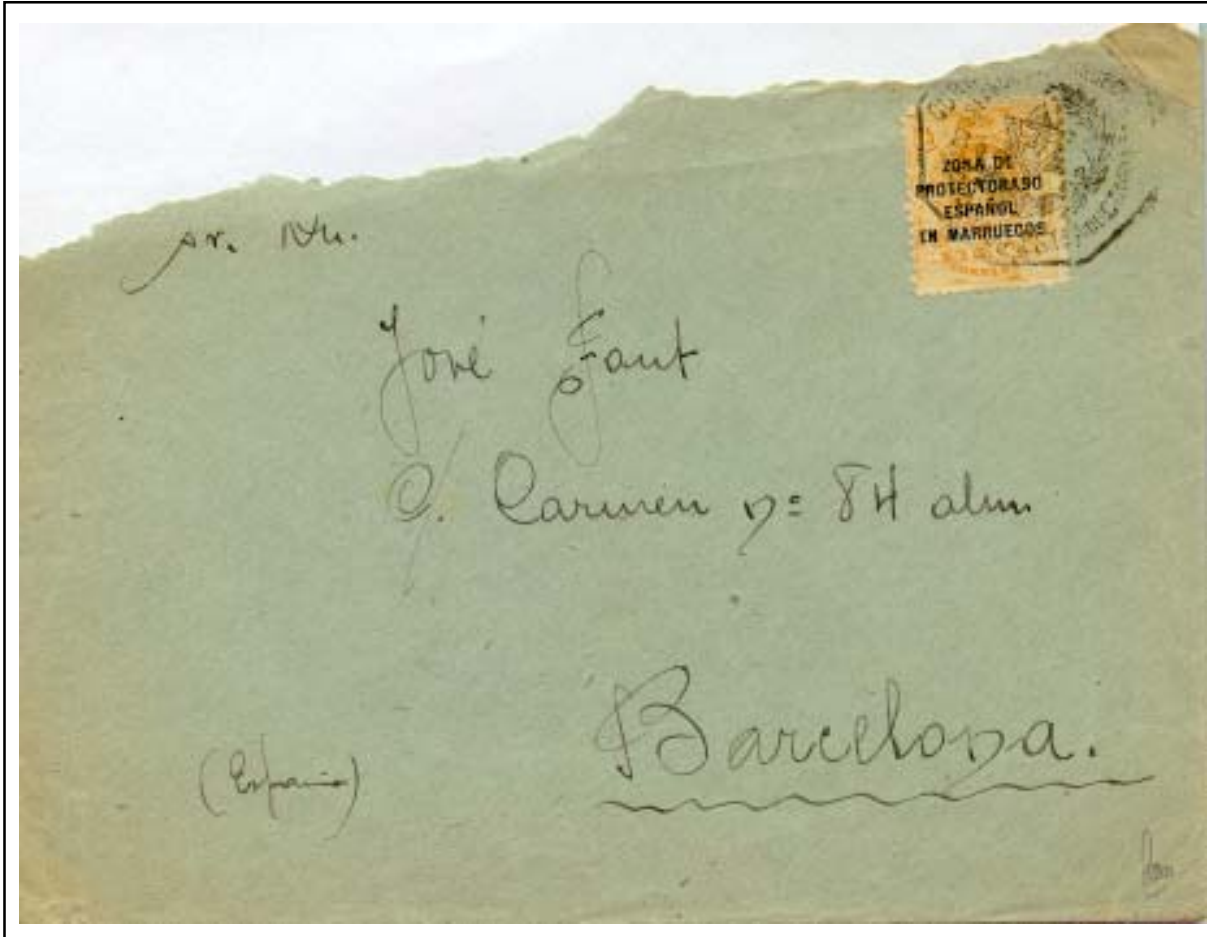 ZONA DE
PROTECTORADO
ESPAÑOL
EN MARRUECOS
Sr. Dn.
José Faut
C/. Carmen nº 84
Barcelona.
(España)